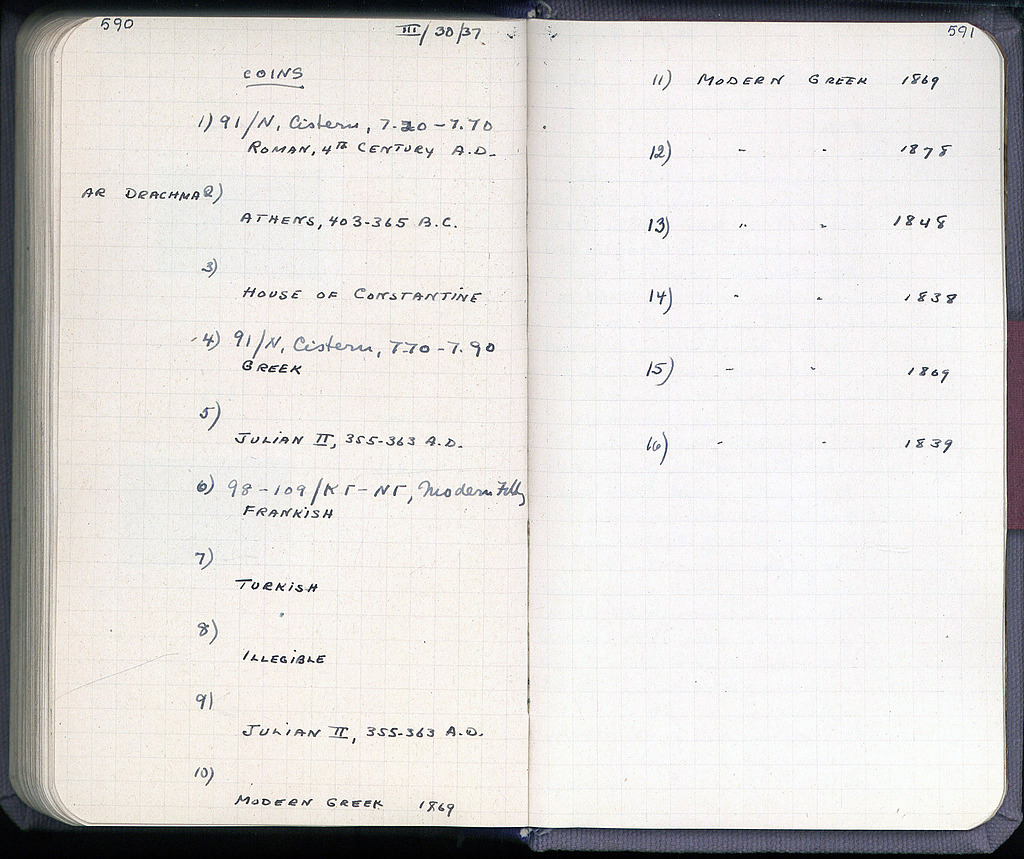 590
III/30/37
COINS
1) 91/N, Cistern, 7.20-7.70
ROMAN, 4TH CENTURY A.D.
AR DRACHMA 2)
ATHENS, 403-365 B.C.
3)
HOUSE OF CONSTANTINE
4) 91/N, Cistern, 7.70-7.90
GREEK
5)
JULIAN II, 355-363 A.D.
6) 98-109/ΚΓ-ΝΓ, Modern
FRANKISH
7)
TURKISH
8)
ILLEGIBLE
9)
JULIAN II, 355-363 A.D.
10)
MODERN GREEK 1869
591
11) MODERN GREEK 1869
12) " " 1878
13) " " 1848
14) " " 1838
15) " " 1869
16) " " 1839